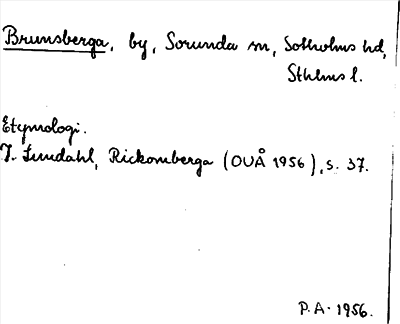 Brunsberga, by, Sorunda sn, Sotholms hd,
Sthlms l.
Etymologi.
I. Lundahl, Rickomberga (OUÅ 1956), s. 37.
P.A. 1956.